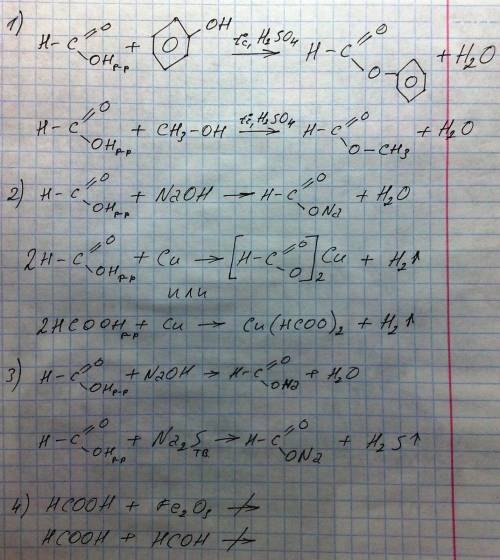 1) H-C(=O)OH р-р + C6H5-OH t°c, H2SO4 → H-C(=O)O-C6H5 + H2O
H-C(=O)OH р-р + CH3-OH t°c, H2SO4 → H-C(=O)O-CH3 + H2O
2) H-C(=O)OH р-р + NaOH → H-C(=O)ONa + H2O
2H-C(=O)OH р-р + Cu → [H-C(=O)O]2 Cu + H2↑
или
2HCOOH р-р + Cu → Cu(HCOO)2 + H2↑
3) H-C(=O)OH р-р + NaOH → H-C(=O)ONa + H2O
H-C(=O)OH р-р + Na2S тв → H-C(=O)ONa + H2S↑
4) HCOOH + Fe2O3 ↛
HCOOH + HCOH ↛